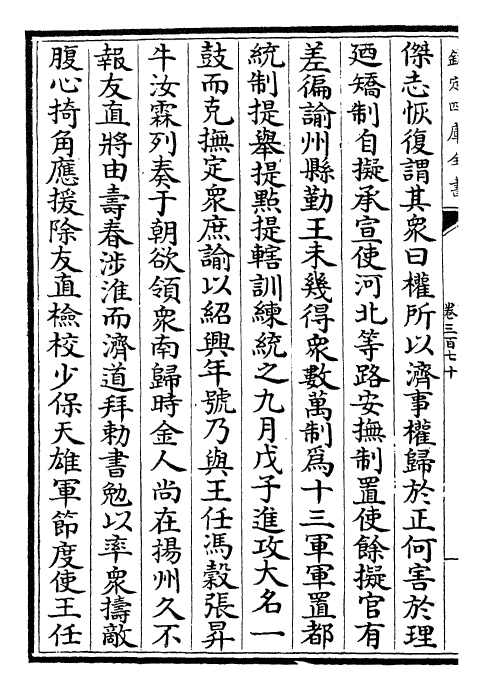 欽定四庫全書
卷三百七十
傑志恢復謂其衆曰權所以濟事權歸於正何害於理
廼矯制自擬承宣使河北等路安撫制置使餘擬官有
差徧諭州縣勤王未幾得衆數萬制爲十三軍軍置都
統制提舉提點提轄訓練統之九月戊子進攻大名一
鼓而克撫定衆庶諭以紹興年號乃與王任馮縠張昇
牛汝霖列奏于朝欲領衆南歸時金人尚在揚州久不
報友直將由壽春涉淮而濟道拜勅書勉以率衆擣敵
腹心掎角應援除友直檢校少保天雄軍節度使王任